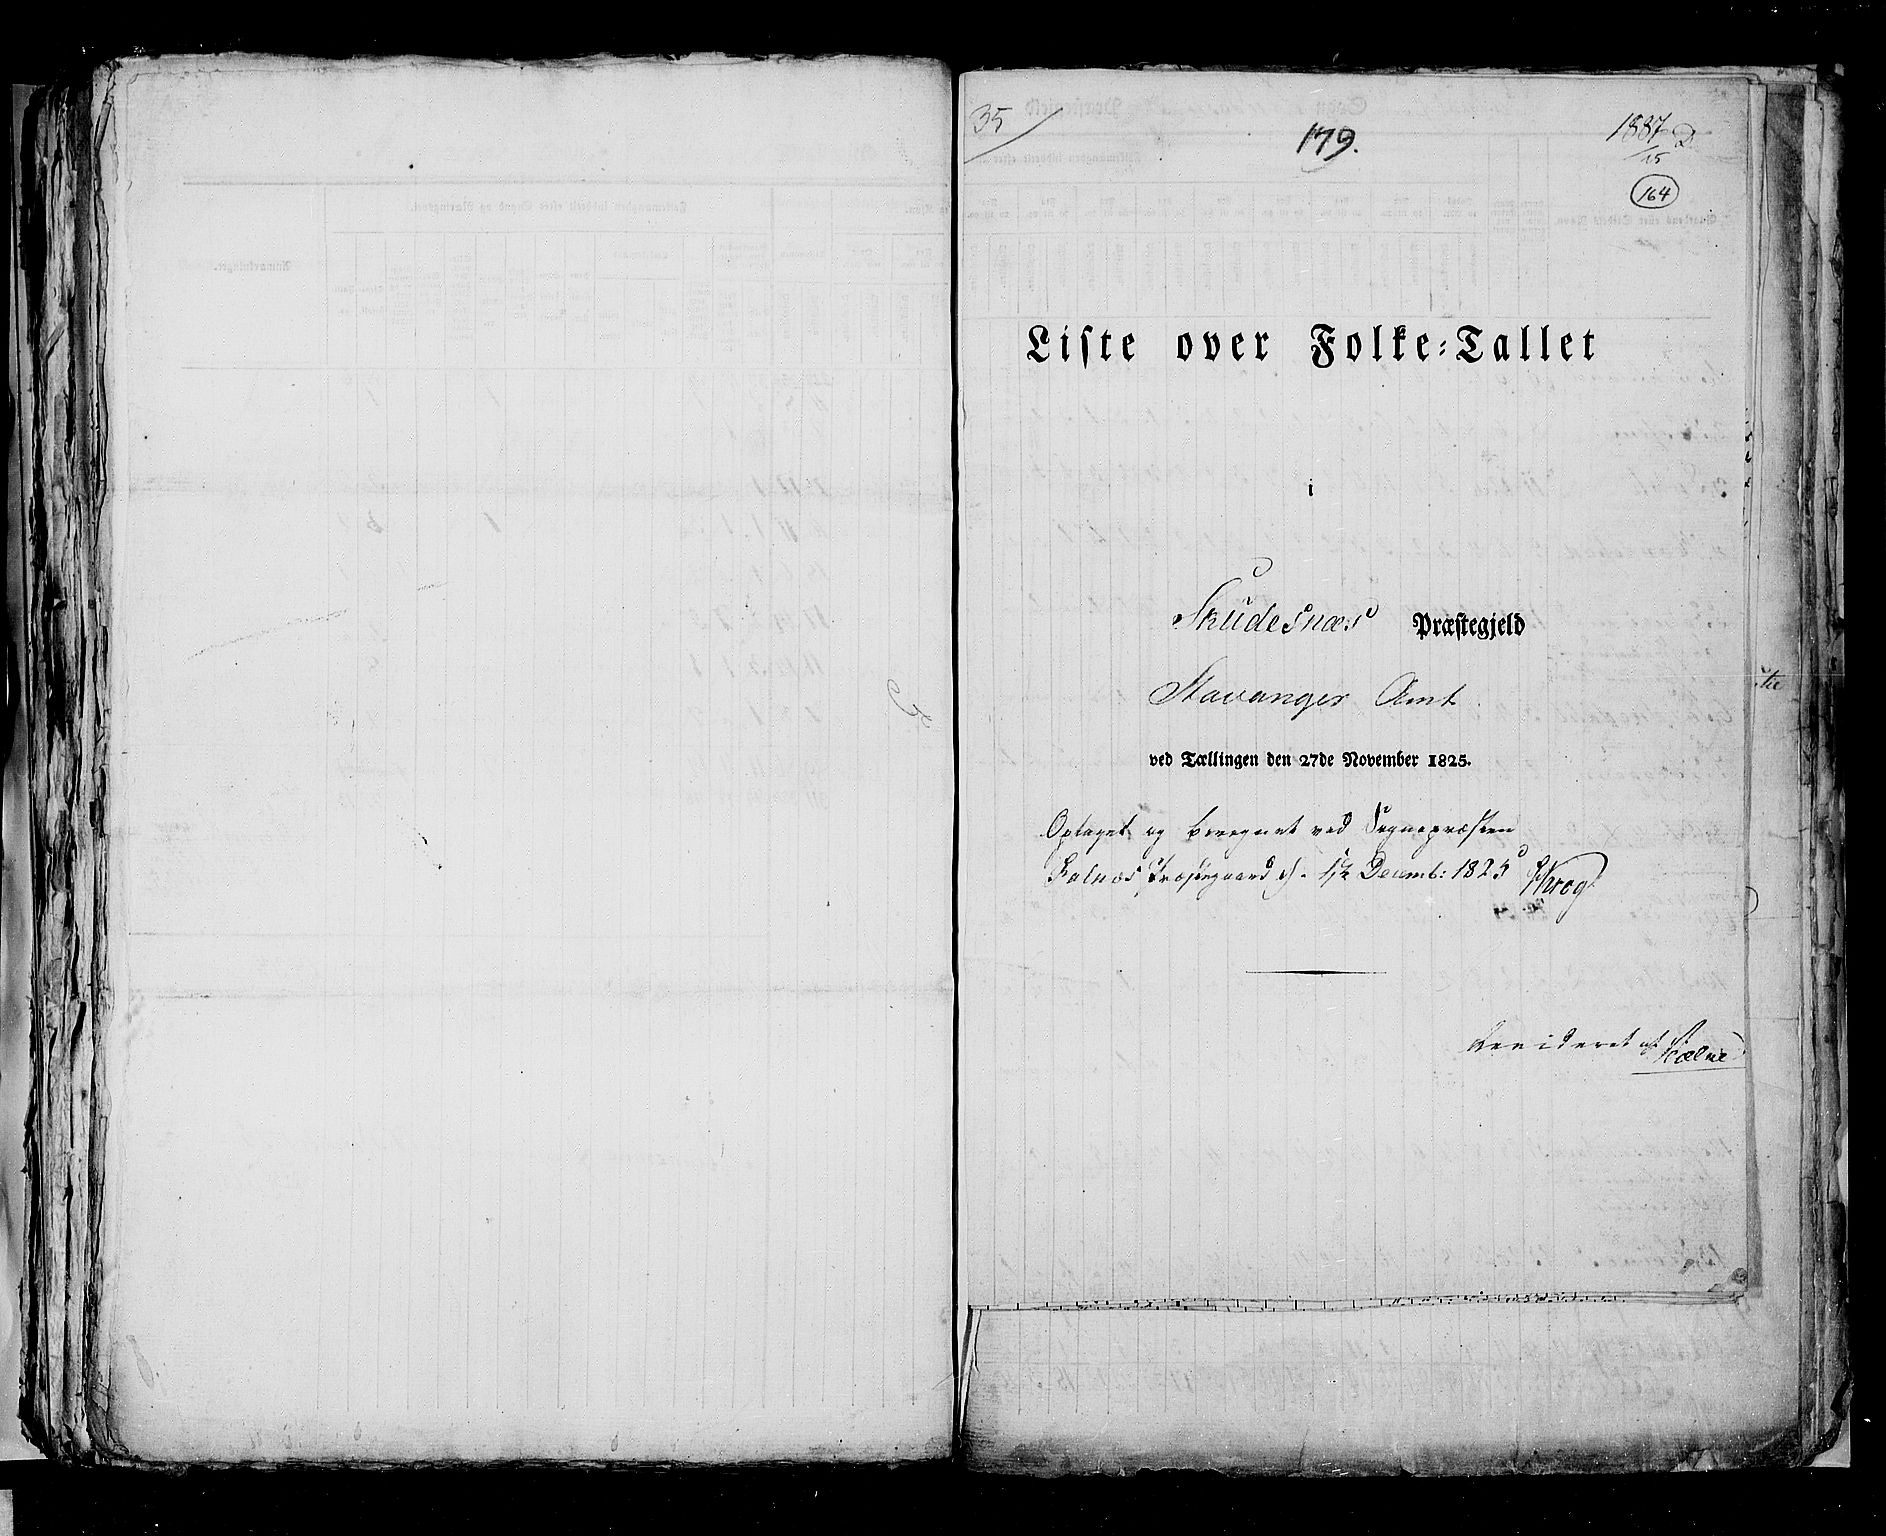 35
179.
1887 D.
/25
164
Liste over Folke-Tallet
i
Skudesnæs Præstegjeld
Stavanger Amt
ved Tællingen den 27de November 1825.
Optaget og beregnet ved Sognepræsten
Falnæs Præstegaard d. Decemb: 1825
Revideret af